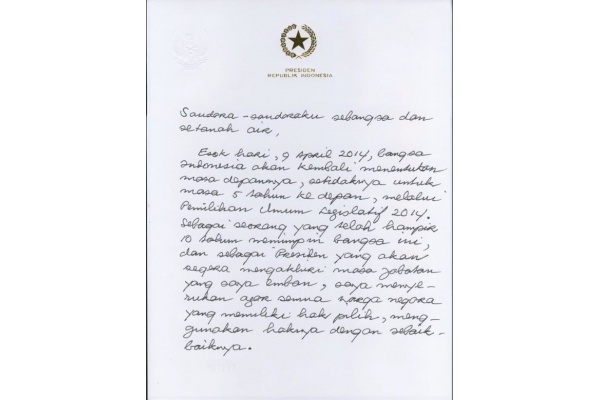 PRESIDEN
REPUBLIK INDONESIA
Saudara-saudaraku sebangsa dan
setanah air,
Esok hari, 9 April 2014, bangsa
Indonesia akan kembali menentukan
masa depannya, setidaknya untuk
masa 5 tahun ke depan, melalui
Pemilihan Umum Legislatif 2014.
Sebagai seorang yang telah hampir
10 tahun memimpin bangsa ini,
dan sebagai Presiden yang akan
segera mengakhiri masa jabatan
yang saya emban, saya menye-
rukan agar semua warga negara
yang memiliki hak pilih, meng-
gunakan haknya dengan sebaik-
baiknya.